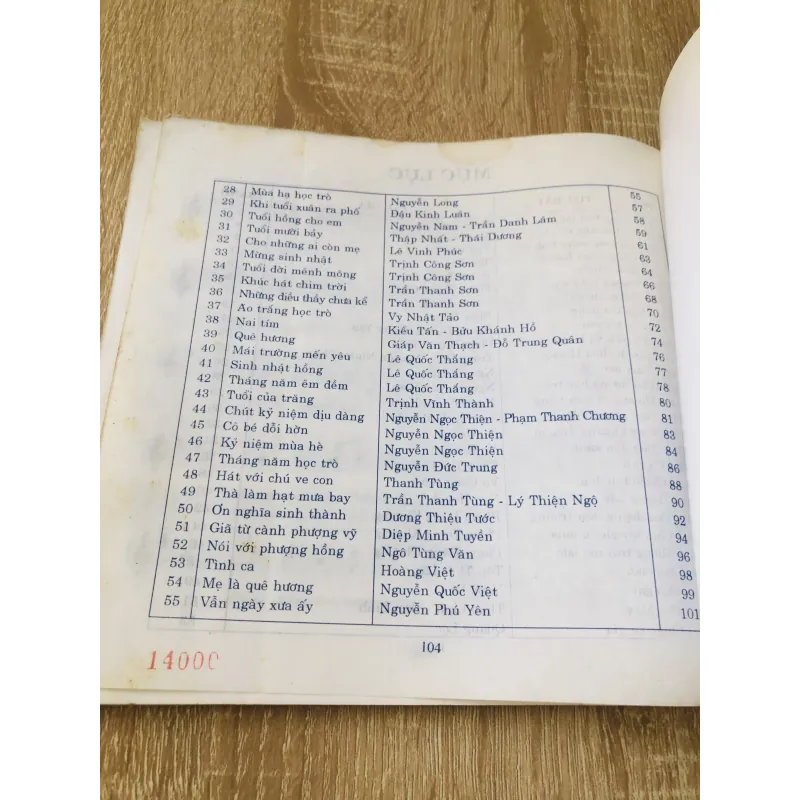 MỤC LỤC
28 Mùa hạ học trò Nguyễn Long 55
29 Khi tuổi xuân ra phố Đậu Kinh Luân 57
30 Tuổi hồng cho em Nguyễn Nam - Trần Danh Lâm 58
31 Tuổi mười bảy Thập Nhất - Thái Dương 59
32 Cho những ai còn mẹ Lê Vinh Phúc 61
33 Mừng sinh nhật Trịnh Công Sơn 63
34 Tuổi đời mênh mông Trịnh Công Sơn 64
35 Khúc hát chim trời Trần Thanh Sơn 66
36 Những điều thầy chưa kể Trần Thanh Sơn 68
37 Ao trắng học trò Vy Nhật Tảo 70
38 Nai tím Kiều Tấn - Bửu Khánh Hồ 72
39 Quê hương Giáp Văn Thạch - Đỗ Trung Quân 74
40 Mái trường mến yêu Lê Quốc Thắng 76
41 Sinh nhật hồng Lê Quốc Thắng 77
42 Tháng năm êm đềm Lê Quốc Thắng 78
43 Tuổi của trăng Trịnh Vĩnh Thành 80
44 Chút kỷ niệm dịu dàng Nguyễn Ngọc Thiện - Phạm Thanh Chương 81
45 Cô bé dỗi hờn Nguyễn Ngọc Thiện 83
46 Kỷ niệm mùa hè Nguyễn Ngọc Thiện 84
47 Tháng năm học trò Nguyễn Đức Trung 86
48 Hát với chú ve con Thanh Tùng 88
49 Thà làm hạt mưa bay Trần Thanh Tùng - Lý Thiện Ngộ 90
50 Ơn nghĩa sinh thành Dương Thiệu Tước 92
51 Giã từ cành phượng vỹ Diệp Minh Tuyền 94
52 Nói với phượng hồng Ngô Tùng Văn 96
53 Tình ca Hoàng Việt 98
54 Mẹ là quê hương Nguyễn Quốc Việt 99
55 Vẫn ngày xưa ấy Nguyễn Phú Yên 101
104
14000